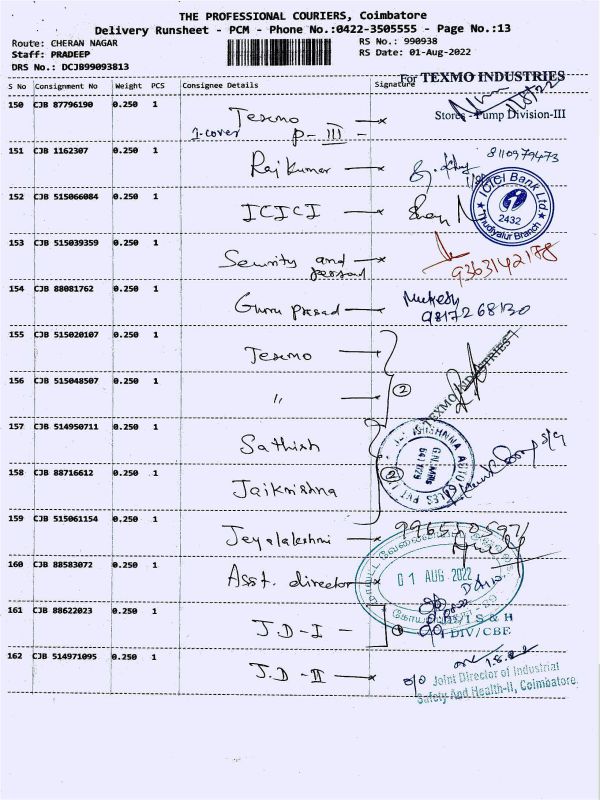 THE PROFESSIONAL COURIERS, Coimbatore
Delivery Runsheet - PCM - Phone No.:0422-3505555 - Page No.:13
Route: CHERAN NAGAR RS No.: 990938
Staff: PRADEEP RS Date: 01-Aug-2022
DRS No.: DCJB99093813
S No Consignment No Weight PCS Consignee Details Signature
For TEXMO INDUSTRIES
150 CJB 87796190 0.250 1 Texmo
Stores - Pump Division-III
1-cover P-III-
151 CJB 1162307 0.250 1 Rajkumar 8110979473
152 CJB 515066084 0.250 1 ICICI
ICICI Bank Ltd
2432
Thudiyalur Branch
153 CJB 515039359 0.250 1 Security and
personal
9363142178
154 CJB 88081762 0.250 1 Guru prasad Mukesh
9817268130
155 CJB 515020107 0.250 1 Texmo
TEXMO INDUSTRIES
156 CJB 515048507 0.250 1 " 2
157 CJB 514950711 0.250 1 Sathish
158 CJB 88716612 0.250 1 Jaikrishna 2
AUTO SALES PVT
159 CJB 515061154 0.250 1 Jeyalakshmi
160 CJB 88583072 0.250 1 Asst. director
01 AUG 2022
161 CJB 88622023 0.250 1 J.D-I -
I S & H
I DIV/CBE
162 CJB 514971095 0.250 1 J.D-II
Joint Director of Industrial
Safety And Health-II, Coimbatore.